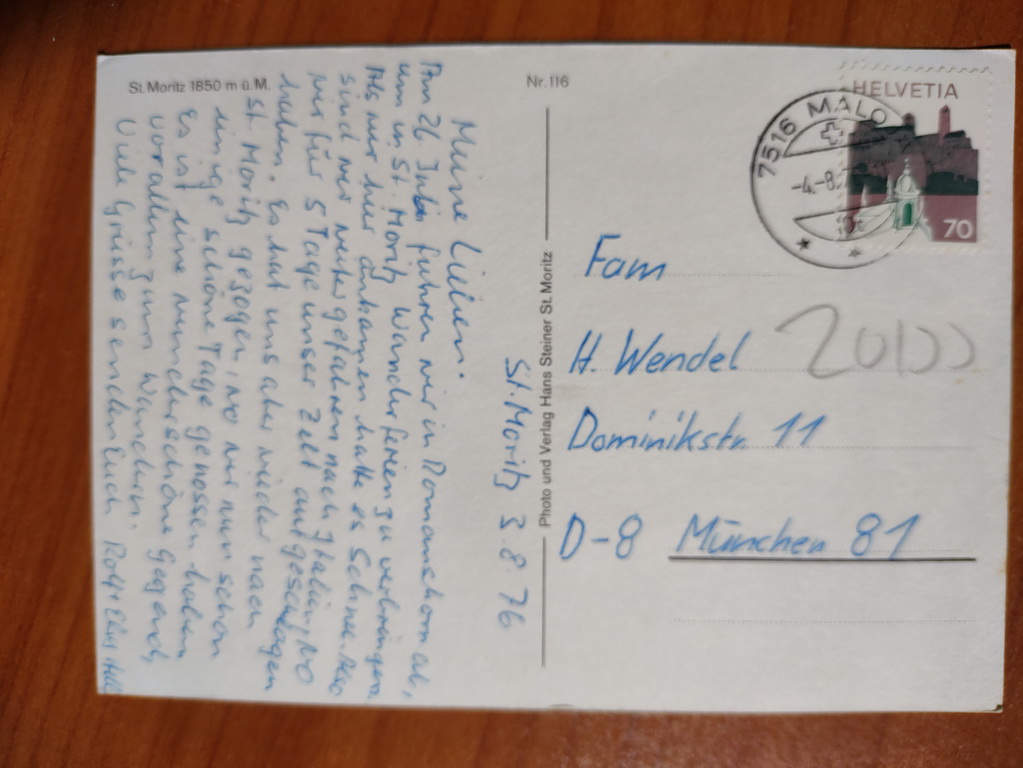 St. Moritz 1850 m ü. M.
Nr. 116
St. Moritz 3. 8. 76
Meine Lieben.
Am 26. Juli fuhren wir in Romanshorn ab,
um in St. Moritz Wanderferien zu verbringen.
Als wir hier ankamen hatte es Schnee. Also
sind wir weiter gefahren nach Italien, wo
wir für 5 Tage unser Zelt aufgeschlagen
haben. Es hat uns aber wieder nach
St. Moritz gezogen, wo wir nun schon
einige schöne Tage genossen haben
Es ist eine wunderschöne Gegend,
vorallem zum Wandern.
Viele Grüsse senden Euch Rolf + Elsy
Photo und Verlag Hans Steiner St. Moritz
HELVETIA
70
7516 MALO
-4.-8.
Fam
H. Wendel
Dominikstr. 11
D-8 München 81